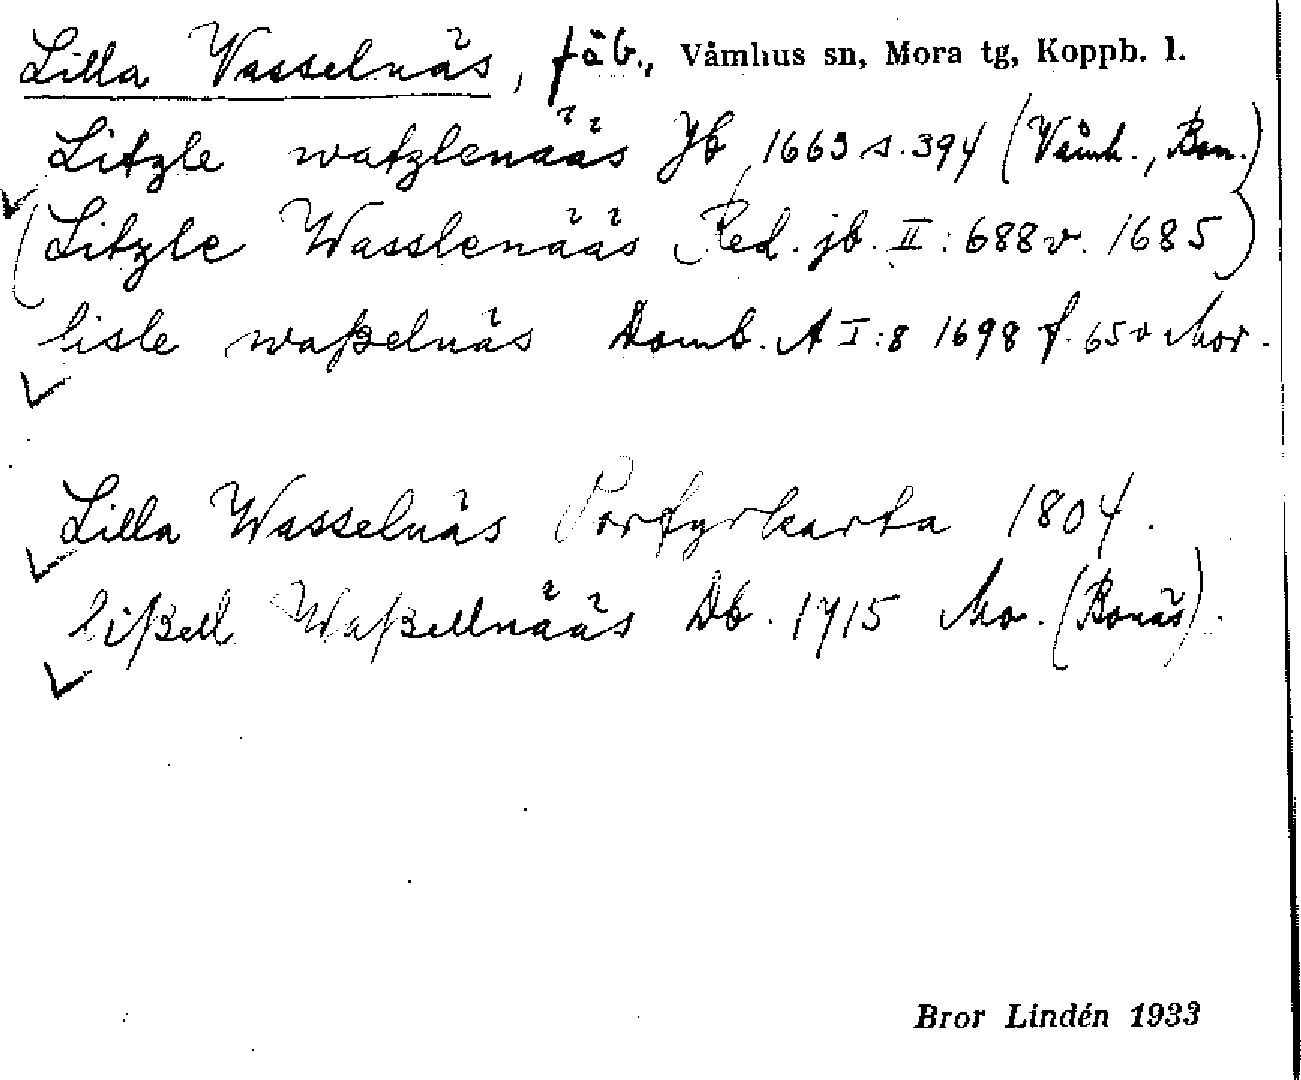 Lilla Vasselnäs, fäb., Våmhus sn, Mora tg, Koppb. l.
Litzle watzlenääs Jb 1663 s. 394 (Våmh., Bon.)
(Litzle Wasslenääs Red. jb. II: 688 v. 1685)
lisle waßelnäs Domb. A I:8 1698 f. 65 v Mor.
Lilla Wasselnäs Porfyrkarta 1804.
lißell Waßellnääs Db. 1715 Mo. (Bonäs).
Bror Lindén 1933